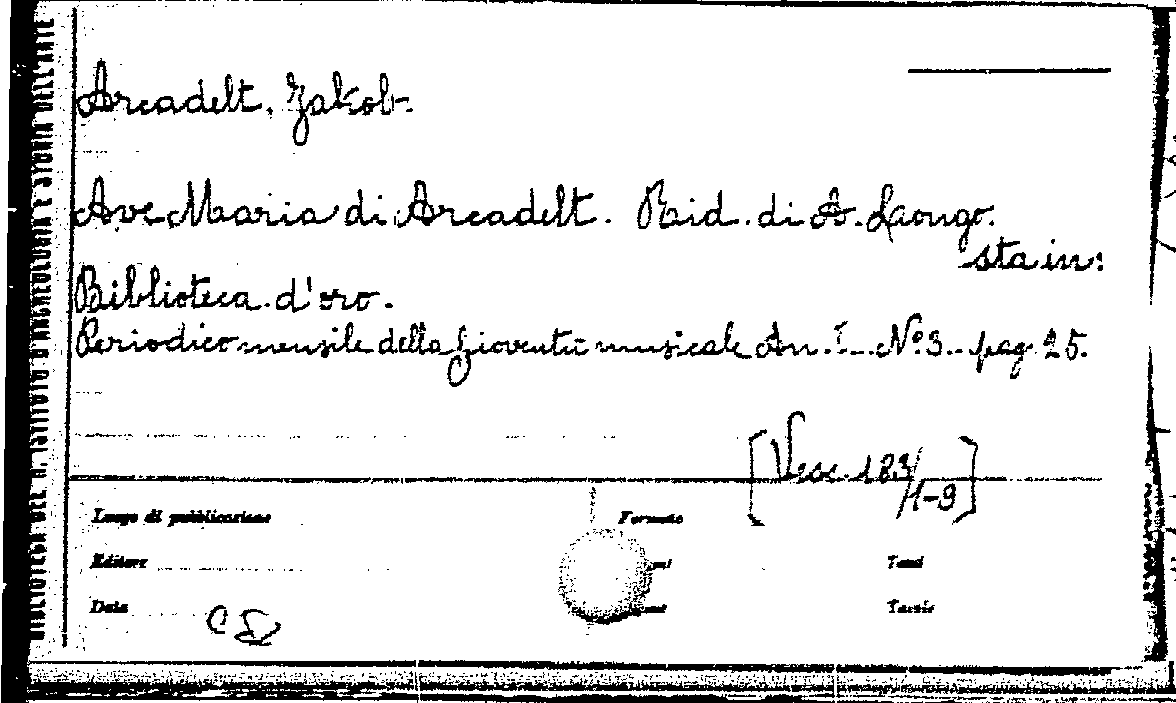 Arcadelt, Jakob.
Ave Maria di Arcadelt. Rid. di A. Laongo.
sta in:
Biblioteca d'oro.
Periodico mensile della gioventù musicale An. I. N° 3. pag. 25.
[Vesc. 183/1-9]
Luogo di pubblicazione
Formato
Editore
Tomi
Data
Tavole
BIBLIOTECA DEL R. ISTITUTO D'ARCHEOLOGIA E STORIA DELL'ARTE